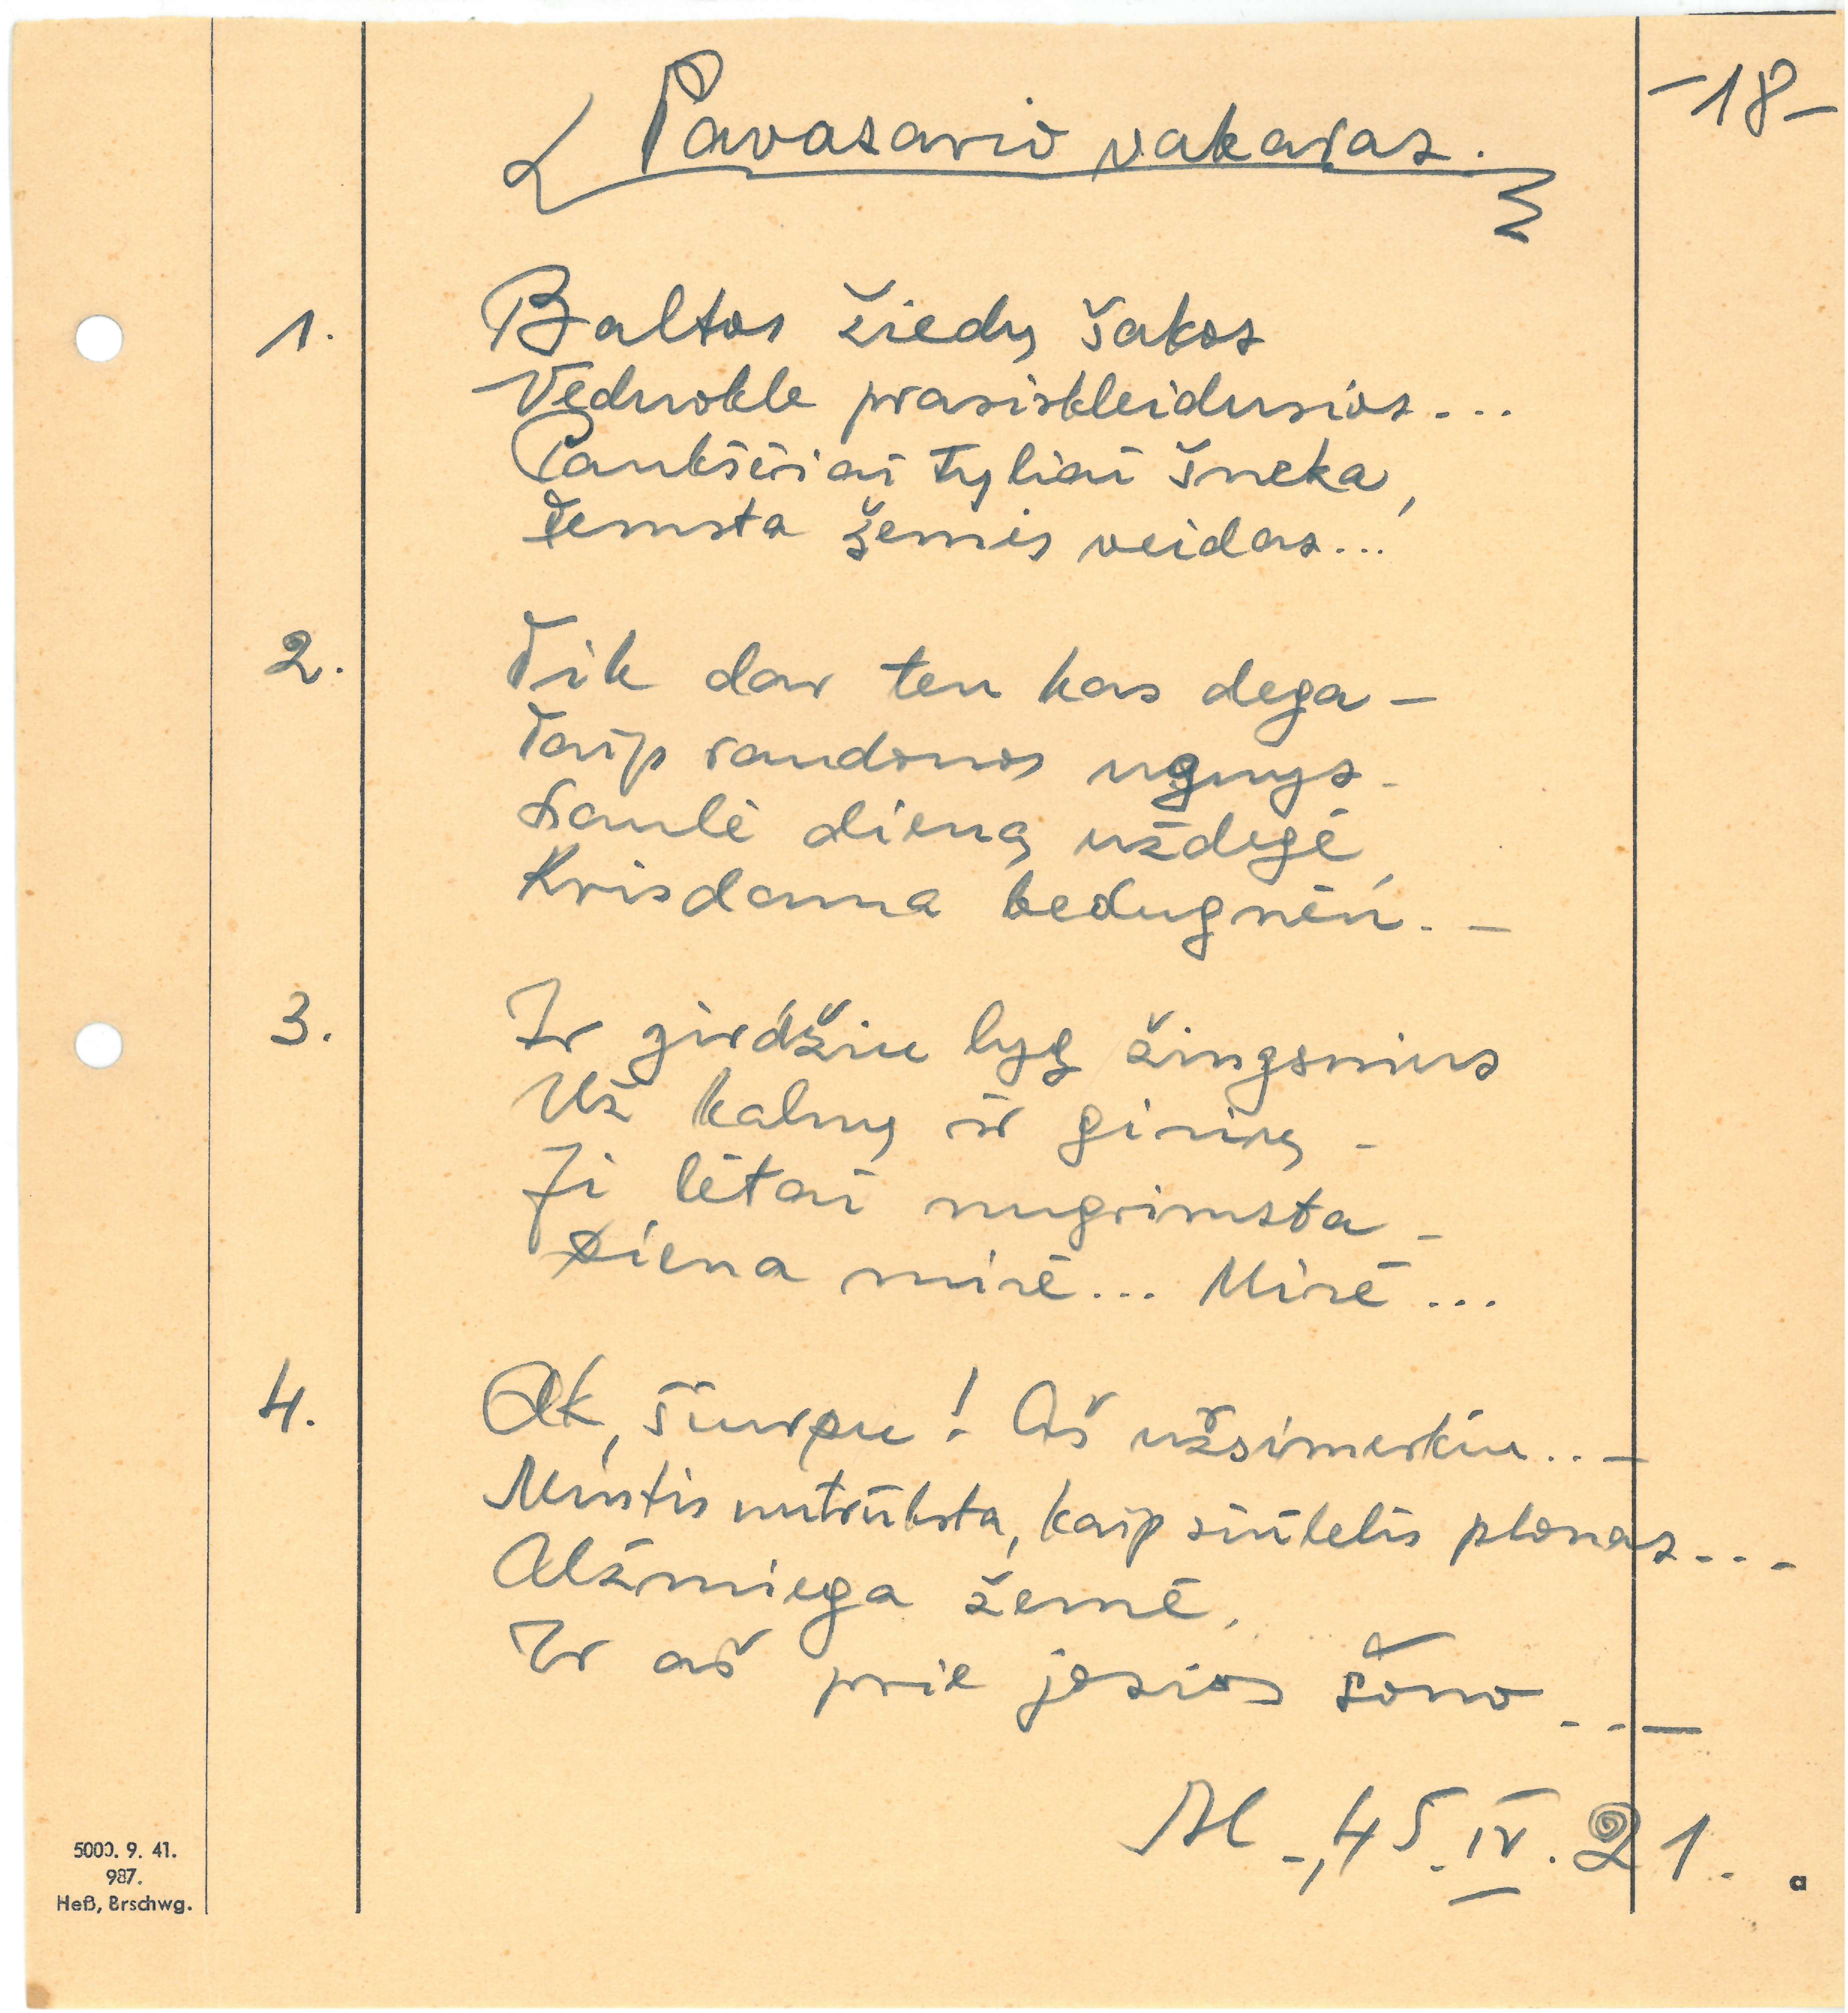 -18-
Pavasario vakaras.
1. Baltos žiedų šakos
Vėduokle prasiskleidusios...
Paukščiai tyliai šneka,
Temsta žemės veidas...
2. Tik dar ten kas dega –
Taip raudonos ugnys.
Saulė dieną uždegė,
Krisdama bedugnėn. –
3. Ir girdžiu lyg žingsnius
Už kalnų ir girių –
Ji lėtai nugrimsta –
Diena mirė... Mirė...
4. Ak, šiurpu! Aš užsimerkiu.. –
Mintis nutrūksta, kaip siūlelis plonas...
Užmiega žemė,
Ir aš prie josios šono.. –
M-,45.IV.21.
5000. 9. 41.
987.
Heß, Brschwg.
a